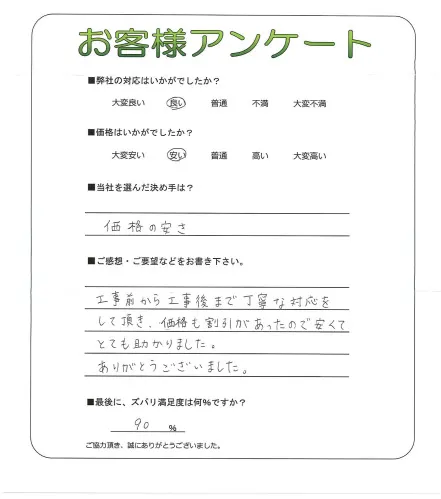 お客様アンケート
■弊社の対応はいかがでしたか？
大変良い 良い 普通 不満 大変不満
■価格はいかがでしたか？
大変安い 安い 普通 高い 大変高い
■当社を選んだ決め手は？
価格の安さ
■ご感想・ご要望などをお書き下さい。
工事前から工事後まで丁寧な対応を
して頂き、価格も割引があったので安くて
とても助かりました。
ありがとうございました。
■最後に、ズバリ満足度は何%ですか？
90 %
ご協力頂き、誠にありがとうございました。